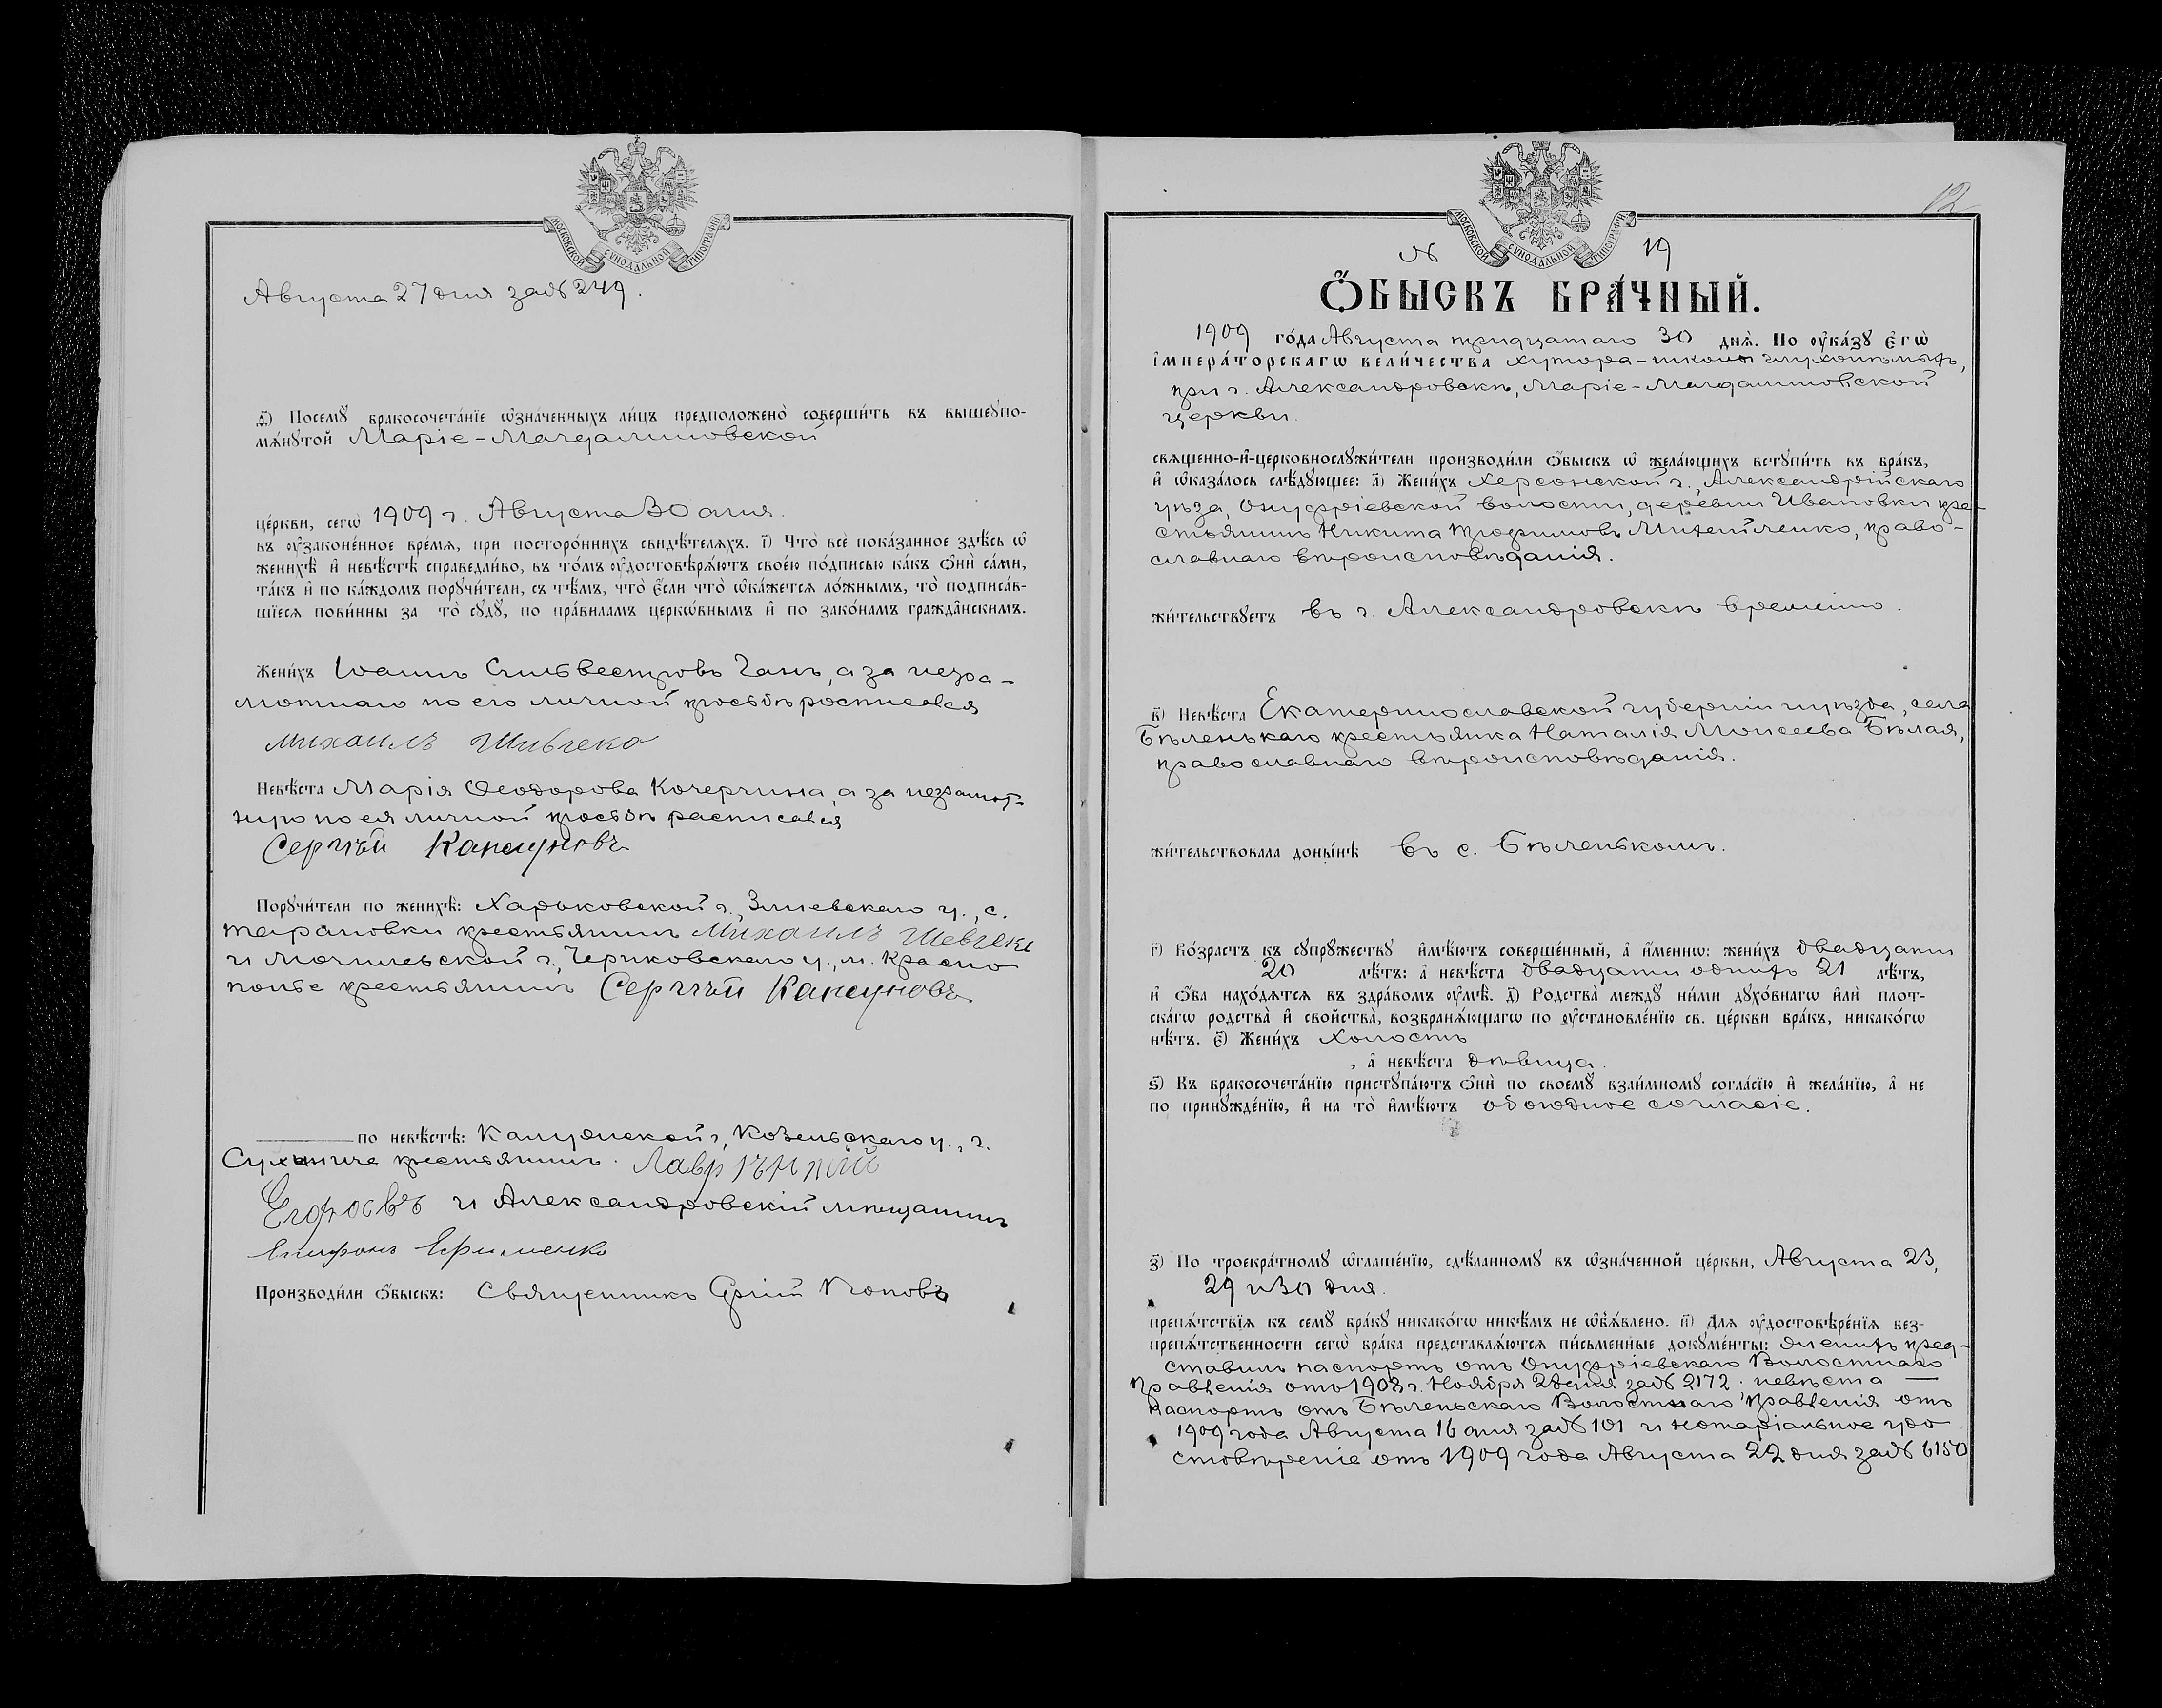 МОСКОВСКОЙ СУНОДАЛЬНОЙ ТИПОГРАФИИ
Августа 27 дня за № 249.
Ѳ҃) Посемꙋ̀ бракосочета́нїе ѡ҆зна́ченныхъ ли́цъ предположенѡ̀ соверши́ть въ вышеꙋпо-
мѧ́нꙋтой Марiе-Магдалиновской
це́ркви, сегѡ̀ 1909 г. Августа 30 дня.
въ ᲂу҆законе́нное вре́мѧ, при посторо́ннихъ свидѣ́телѧхъ. і҃) Что̀ всѐ пока́занное здѣ́сь ѡ҆
женихѣ̀ и҆ невѣ́стѣ справедли́во, въ то́мъ ᲂу҆достовѣрѧ́ютъ свое́ю по́дписью ка́къ ѻ҆нѝ са́ми,
та́къ и҆ по ка́ждомъ порꙋчи́тели, съ тѣ́мъ, что̀ є҆́сли что̀ ѡ҆ка́жетсѧ ло́жнымъ, то̀ подписа́в-
шїесѧ пови́нны за то̀ сꙋдꙋ̀, по пра́виламъ церкѡ́внымъ и҆ по зако́намъ гражда̑нскимъ.
Жени́хъ Iоаннъ Сильвестровъ Ганъ, а за негра-
мотнаго по его личной просьбѣ росписался
Михаилъ Шивчеко
Невѣ́ста Марiя Ѳеодорова Кочергина, а за неграмот-
ную по ея личной просьбѣ расписался
Сергѣй Капсуновъ
Порꙋчи́тели по женихѣ̀: Харьковской г., Змиевскаго у., с.
Тарановки крестьянинъ Михаилъ Шевчеко
и Могилевской г., Чериковскаго у., м. Красно
полье крестьянинъ Сергѣй Капсуновъ
по невѣ́стѣ: Калужской г., Козельскаго у., г.
Сухиниче крестьянинъ. Лаврѣнтiй
Егоровъ и Александровскiй мѣщанинъ
Епифанъ Ефименко
Производи́ли ѻ҆́быскъ: Священникъ Юрiй Поповъ
12
МОСКОВСКОЙ СУНОДАЛЬНОЙ ТИПОГРАФИИ
№ 19
Ѻ҆́БЫСКЪ БРА́ЧНЫЙ.
1909 го́да Августа тридцатаго 30 днѧ̀. По ᲂу҆ка́зꙋ Є҆гѡ̀
і҆мпера́торскагѡ вели́чества хутора-школы глухонѣмыхъ,
при г. Александровскѣ, Марiе-Магдалиновской
церкви.
свѧщенно-и҆-церковнослꙋжи́тели производи́ли ѻ҆́быскъ ѡ҆ жела́ющихъ встꙋпи́ть въ бра́къ,
и҆ ѡ҆каза́лось слѣ́дꙋющее: а҃) Жени́хъ Херсонской г., Александрiйскаго
уѣзда, Онуфрiевской волости, деревни Ивановки кре-
стьянинъ Никита Трофимовъ Митейленко, право-
славнаго вѣроисповѣданiя.
жи́тельствꙋетъ въ г. Александровскѣ временно.
в҃) Невѣ́ста Екатеринославской губернiи и уѣзда, села
Бѣленькаго крестьянка Наталiя Моисеева Бѣлая,
православнаго вѣроисповѣданiя.
жи́тельствовала доны́нѣ въ с. Бѣленькомъ.
г҃) Во́зрастъ къ сꙋпрꙋ́жествꙋ и҆мѣ́ютъ соверше́нный, а҆ и҆́меннѡ: жени́хъ двадцати
20 лѣ́тъ: а҆ невѣ́ста двадцати одинъ 21 лѣ́тъ,
и҆ ѻ҆́ба нахо́дѧтсѧ въ здра́вомъ ᲂу҆мѣ̀. д҃) Родства̀ междꙋ̀ ни́ми дꙋхо́внагѡ и҆лѝ плот-
ска́гѡ родства̀ и҆ свойства̀, возбранѧ́ющагѡ по ᲂу҆становле́нїю св. це́ркви бра́къ, никако́гѡ
нѣ́тъ. є҃) Жени́хъ холостъ
, а҆ невѣ́ста дѣвица.
ѕ҃) Къ бракосочета́нїю пристꙋпа́ютъ ѻ҆нѝ по своемꙋ̀ взаи́мномꙋ согла́сїю и҆ жела́нїю, а҆ не
по принꙋжде́нїю, и҆ на то̀ и҆мѣ́ютъ обоюдное согласiе.
з҃) По троекра́тномꙋ ѡ҆глаше́нїю, сдѣ́ланномꙋ въ ѡ҆зна́ченной це́ркви, Августа 23,
29 и 30 дня.
препѧ́тствїѧ къ семꙋ̀ бра́кꙋ никако́гѡ никѣ́мъ не ѡ҆б̾ѧ́влено. и҃) Длѧ ᲂу҆достовѣре́нїѧ без-
препѧ́тственности сегѡ̀ бра́ка представлѧ́ютсѧ пи́сьменные докꙋме́нты: женихъ пред-
ставилъ паспортъ отъ Онуфрiевскаго Волостнаго
Правленiя отъ 1908 г. Ноября 28 дня за № 2172. невѣста —
паспортъ отъ Бѣленьскаго Волостнаго Правленiя отъ
1909 года Августа 16 дня за № 101 и нотарiальное удо
стовѣренiе отъ 1909 года Августа 22 дня за № 6150